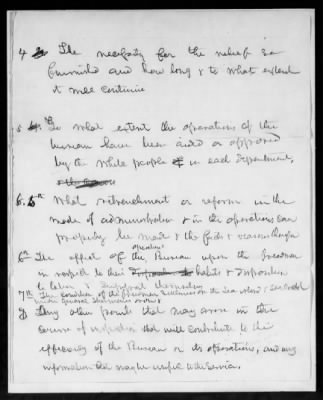 4 The necessity for the relief so
furnished and how long & to what extent
it will continue
5 To what extent the operations of the
bureau have been aided or opposed
by the white people in each department,
6. What retrenchment or reform in the
mode of administration & in the operations can
properly be made & the facts & reasons therefor
6th The effect of operations the Bureau upon the freedmen
in respect to their habits & disposition
to labor & support themselves
7th The condition of the freedmen settled on the Sea
under General Sherman's orders
8 Any other points that may arise in the
course of inspection that will contribute to the
efficiency of the Bureau or its operations, and any
information that may be useful to the service.